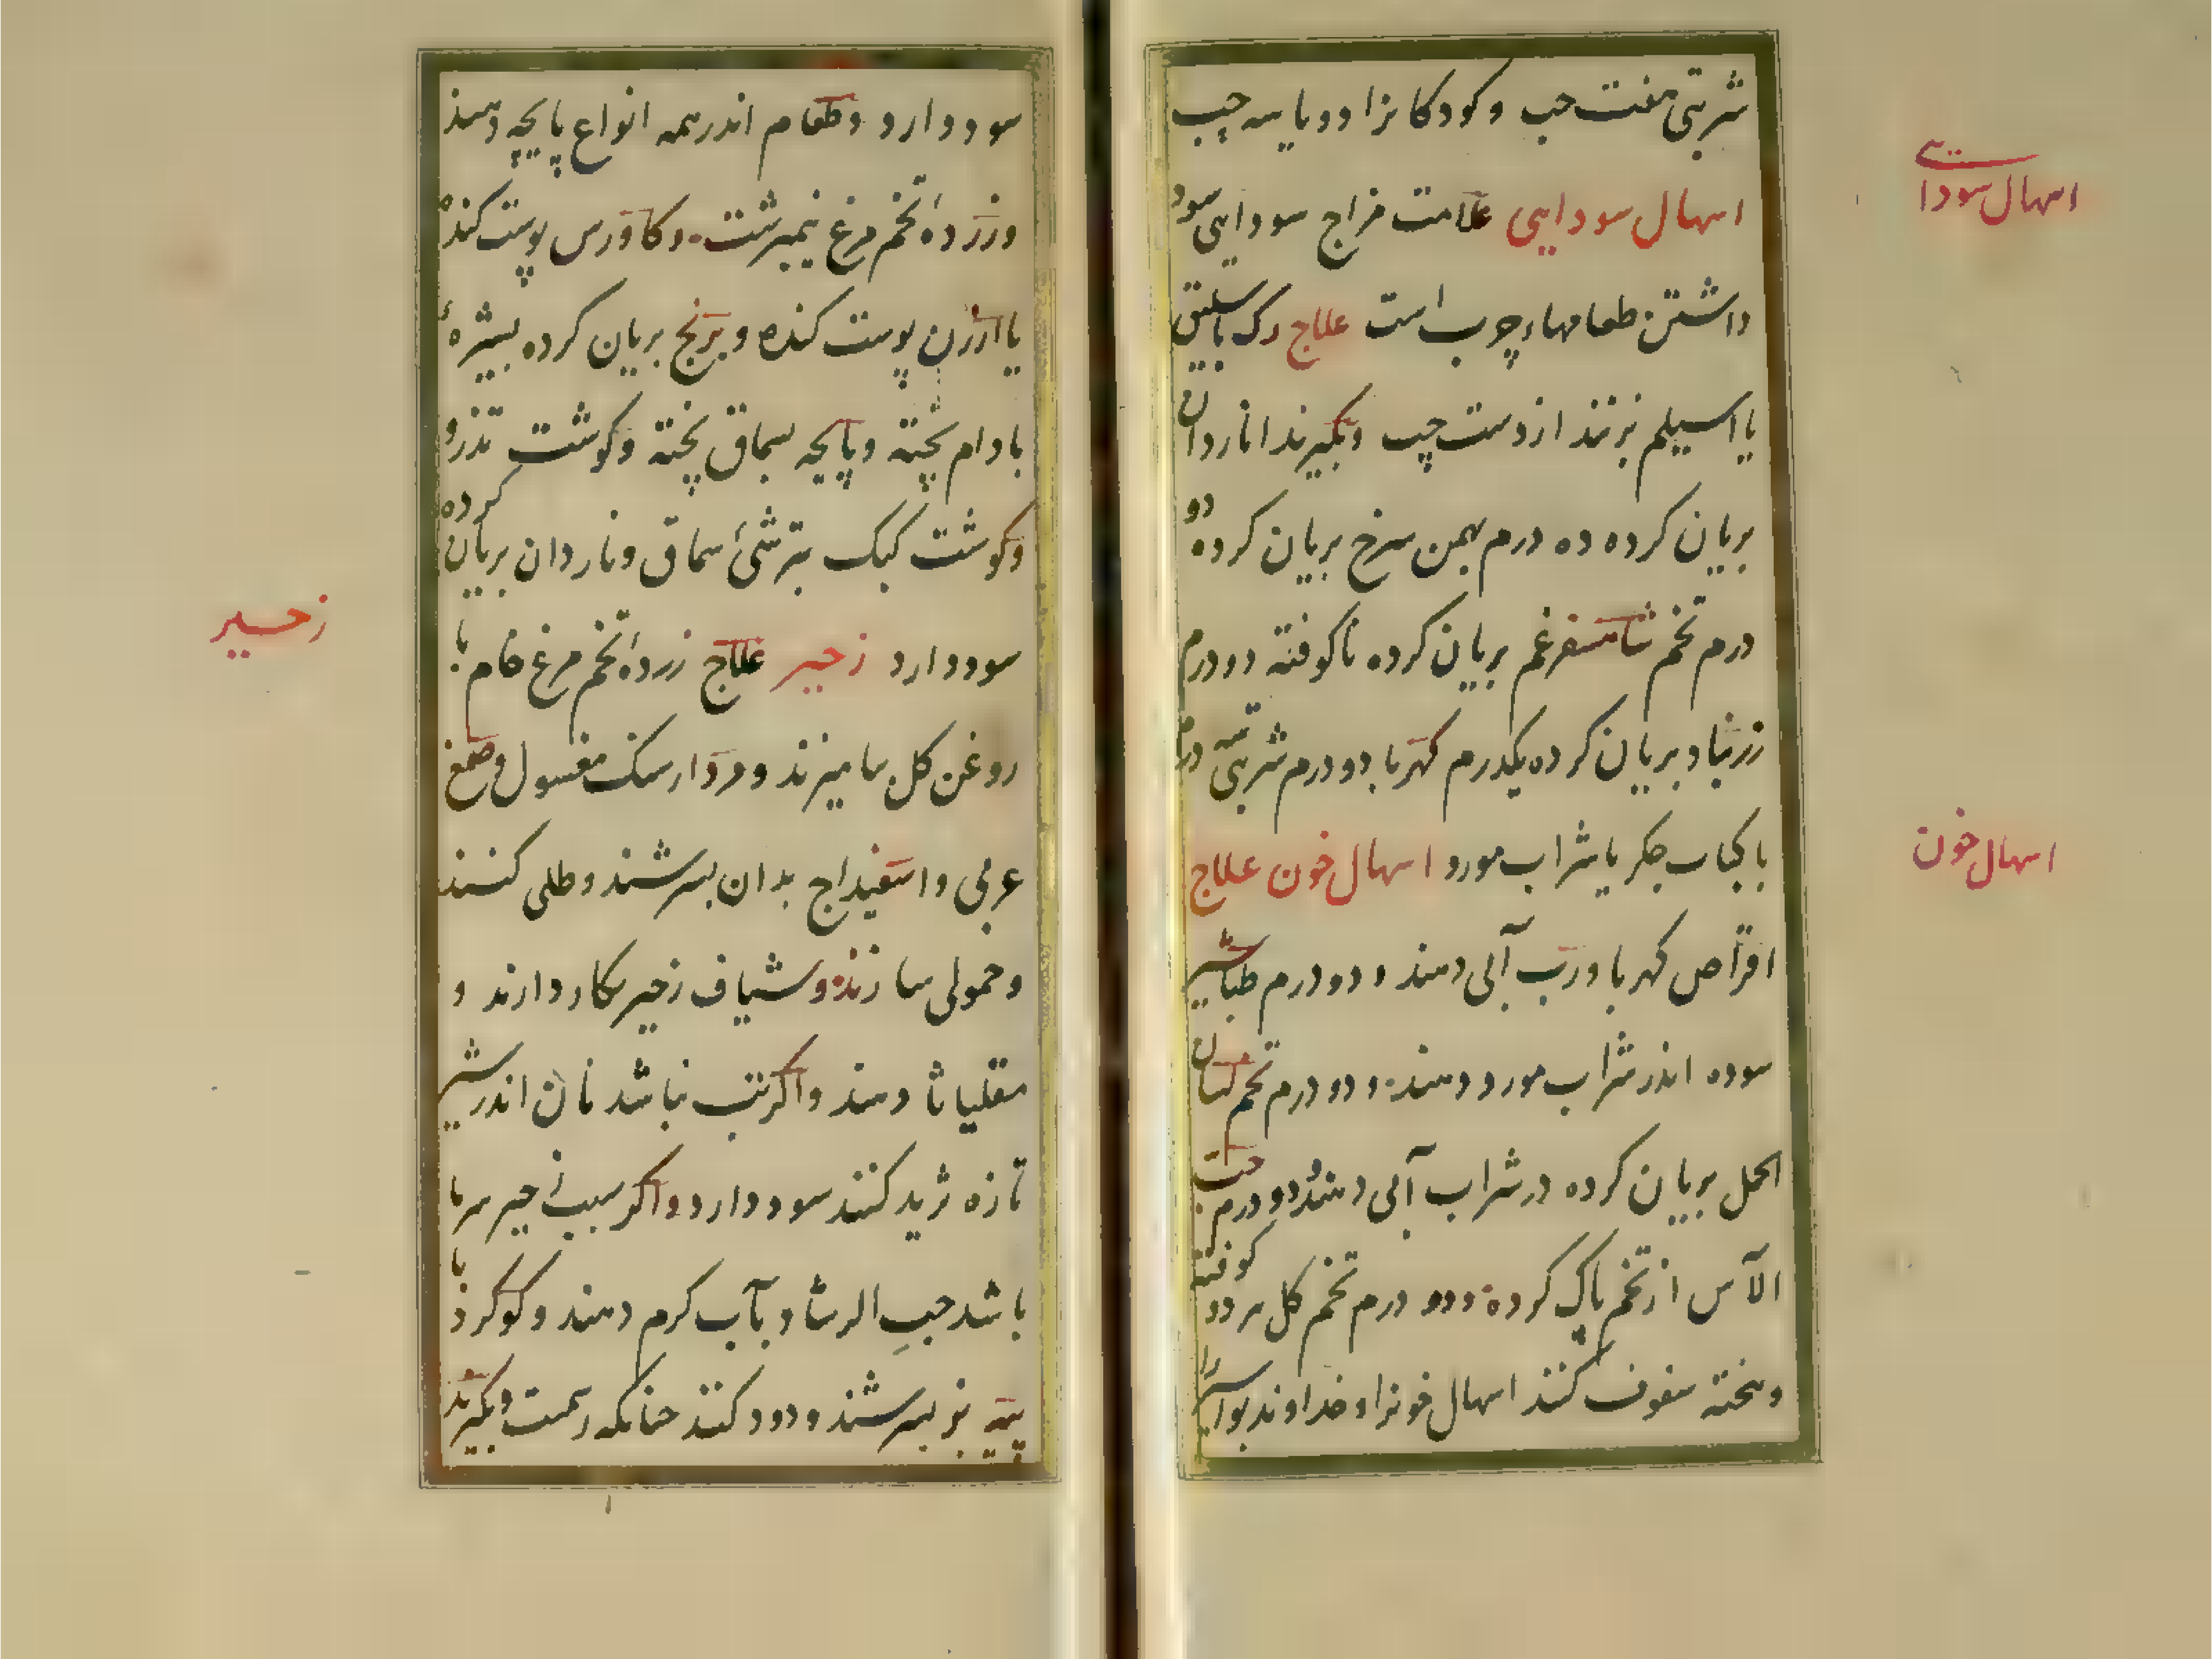 شربتی هفت حب وکودکانرا دو یا سه حب
اسهال سودایی
اسهال سودایی علامت مزاج سودایی سود
داشتن طعامهاء چرب است علاج رک باسلیق
یا اسیلم بزنند از دست چپ وبکیرند اناردان
بریان کرده ده درم بهمن سرخ بریان کرده دو
درم تخم شاهسفرغم بریان کرده ناکوفته دو درم
زرنباد بریان کرده یکدرم کهربا دو درم شربتی سه درم
با کباب جکر یا شراب مورد اسهال خون علاج
اسهال خون
اقراص کهربا ورب آبی دهند و دو درم طباشیر
سوده اندر شراب مورد دهند و دو درم تخم لسان
الحمل بریان کرده در شراب آبی دهند و دو درم حب
الآس از تخم پاک کرده و دو درم تخم کل هر دو کوفته
وبیخته سفوف کنند اسهال خونرا وخداوند بواسیر را
سود دارد وطعام اندر همه انواع پایچه دهند
وزردهٔ تخم مرغ نیمبرشت وکاورس پوست کنده
یا ارزن پوست کنده وبرنج بریان کرده بشیرهٔ
بادام پخته وپایچه بسماق پخته وکوشت تذرو
وکوشت کبک بترشیٔ سماق وناردان بریان کرده
سود دارد زحیر علاج زردهٔ تخم مرغ خام با
زحیر
روغن کل بیامیزند ومردارسنک مغسول وصمغ
عربی واسفیداج بدان بسرشند وطلی کنند
وحمولی سازند وشیاف زحیر بکار دارند و
مقلیاثا دهند واکر تب نباشد نان اندر شیر
تازه ثرید کنند سود دارد واکر سبب زحیر سرما
باشد حب الرشاد بآب کرم دهند وکوکرد با
پیه بز بسرشند ودود کنند چنانکه رسمست وبکیرند